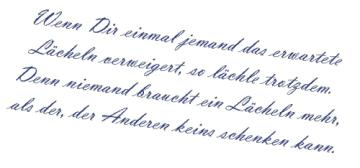 Wenn Dir einmal jemand das erwartete
Lächeln verweigert, so lächle trotzdem.
Denn niemand braucht ein Lächeln mehr,
als der, der Anderen keins schenken kann.